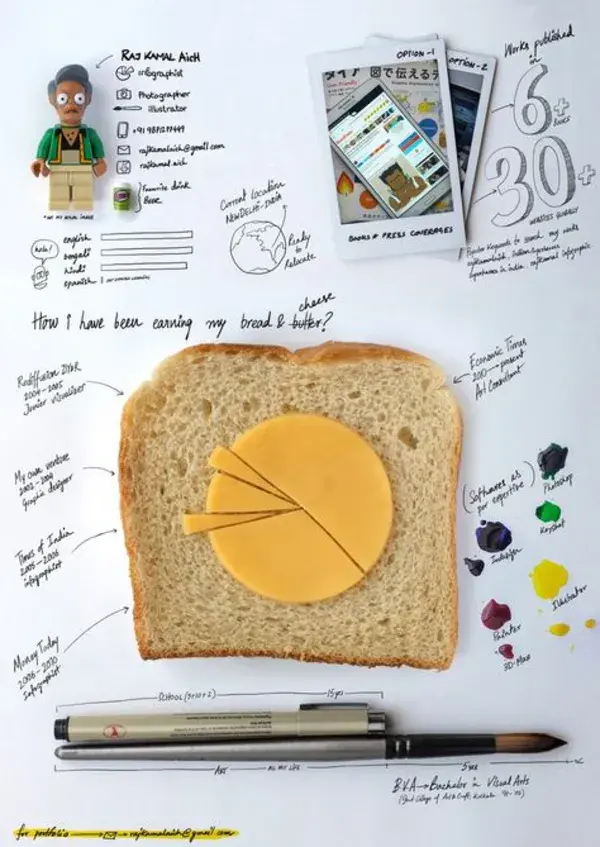 RAJ KAMAL AICH
infographist
Photographer
illustrator
rajkamalaich@gmail.com
rajkamal aich
Favourite drink
Beer
hola!
english
bengali
hindi
spanish
Current location
NEW DELHI - INDIA
Ready
to
Relocate
OPTION-1
OPTION-2
BOOKS & PRESS COVERAGES
Works published
in
6+
BOOKS
30+
WEBSITES GLOBALLY
Popular keywords to search my works
How i have been earning my bread & butter?
cheese
Rediffusion DY&R
2004-2005
Junior visualizer
My own venture
Graphic designer
Times of India
2005-2006
infographist
Money Today
2006-2010
infographist
Economic Times
2010 → present
Art Consultant
(Softwares as
per expertise)
Photoshop
Keyshot
Indesign
Illustrator
Painter
3D-Max
SCHOOL (3+10+2)
15 yrs
ART
ALL MY LIFE
5 yrs
B.V.A → Bachelor in Visual Arts
for portfolio → rajkamalaich@gmail.com